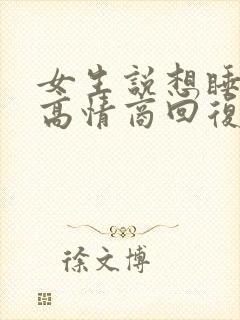 女生説想睡
高情商回復
徐文博